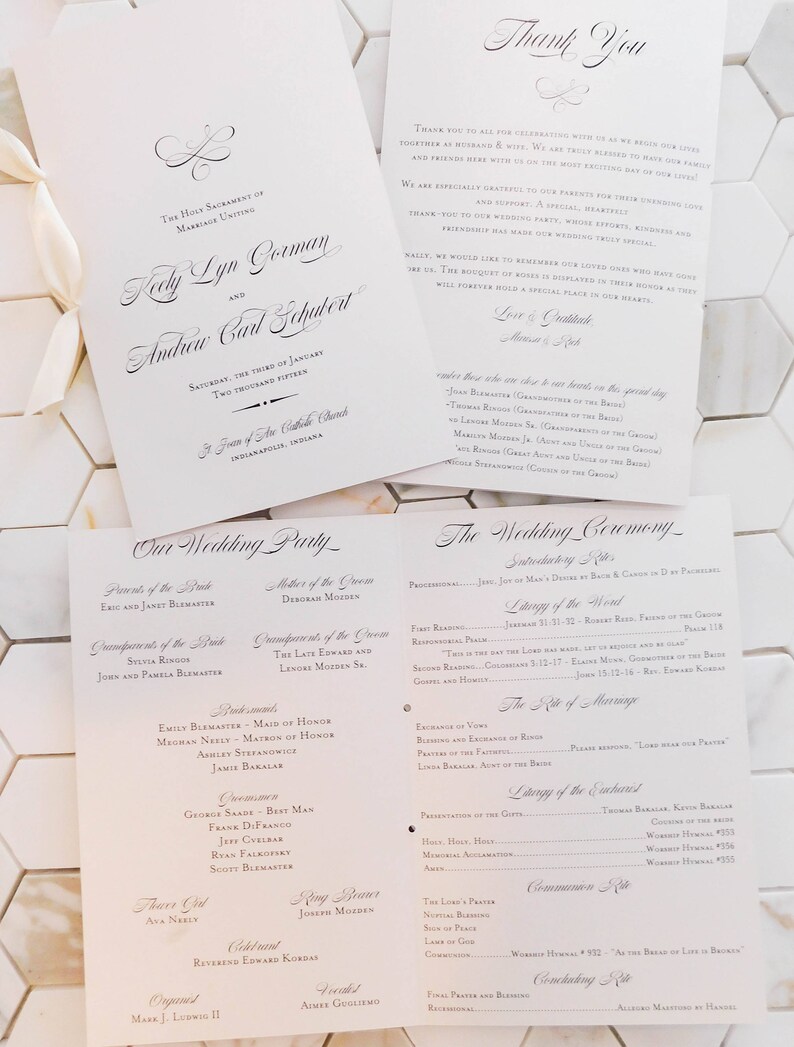 The Holy Sacrament of
Marriage Uniting
Keely Lyn Gorman
and
Andrew Carl Schubert
Saturday, the third of January
Two thousand fifteen
St. Joan of Arc Catholic Church
Indianapolis, Indiana
Thank You
Thank you to all for celebrating with us as we begin our lives
together as husband & wife. We are truly blessed to have our family
and friends here with us on the most exciting day of our lives!
We are especially grateful to our parents for their unending love
and support. A special, heartfelt
thank-you to our wedding party, whose efforts, kindness and
friendship has made our wedding truly special.
nally, we would like to remember our loved ones who have gone
ore us. The bouquet of roses is displayed in their honor as they
will forever hold a special place in our hearts.
Love & Gratitude,
Marissa & Rich
ember those who are close to our hearts on this special day.
Joan Blemaster (Grandmother of the Bride)
Thomas Ringos (Grandfather of the Bride)
nd Lenore Mozden Sr. (Grandparents of the Groom)
Marilyn Mozden Jr. (Aunt and Uncle of the Groom)
aul Ringos (Great Aunt and Uncle of the Bride)
Nicole Stefanowicz (Cousin of the Groom)
Our Wedding Party
Parents of the Bride
Eric and Janet Blemaster
Mother of the Groom
Deborah Mozden
Grandparents of the Bride
Sylvia Ringos
John and Pamela Blemaster
Grandparents of the Groom
The Late Edward and
Lenore Mozden Sr.
Bridesmaids
Emily Blemaster – Maid of Honor
Meghan Neely – Matron of Honor
Ashley Stefanowicz
Jamie Bakalar
Groomsmen
George Saade – Best Man
Frank DiFranco
Jeff Cvelbar
Ryan Falkofsky
Scott Blemaster
Flower Girl
Ava Neely
Ring Bearer
Joseph Mozden
Celebrant
Reverend Edward Kordas
Organist
Mark J. Ludwig II
Vocalist
Aimee Gugliemo
The Wedding Ceremony
Introductory Rites
Processional......Jesu, Joy of Man's Desire by Bach & Canon in D by Pachelbel
Liturgy of the Word
First Reading..............Jeremiah 31:31-32 – Robert Reed, Friend of the Groom
Responsorial Psalm..............Psalm 118
"This is the day the Lord has made, let us rejoice and be glad"
Second Reading....Colossians 3:12-17 – Elaine Munn, Godmother of the Bride
Gospel and Homily..............John 15:12-16 – Rev. Edward Kordas
The Rite of Marriage
Exchange of Vows
Blessing and Exchange of Rings
Prayers of the Faithful..............Please respond, "Lord hear our Prayer"
Linda Bakalar, Aunt of the Bride
Liturgy of the Eucharist
Presentation of the Gifts..............Thomas Bakalar, Kevin Bakalar
Cousins of the bride
Holy, Holy, Holy..............Worship Hymnal #353
Memorial Acclamation..............Worship Hymnal #356
Amen..............Worship Hymnal #355
Communion Rite
The Lord's Prayer
Nuptial Blessing
Sign of Peace
Lamb of God
Communion..............Worship Hymnal # 932 – "As the Bread of Life is Broken"
Concluding Rite
Final Prayer and Blessing
Recessional..............Allegro Maestoso by Handel